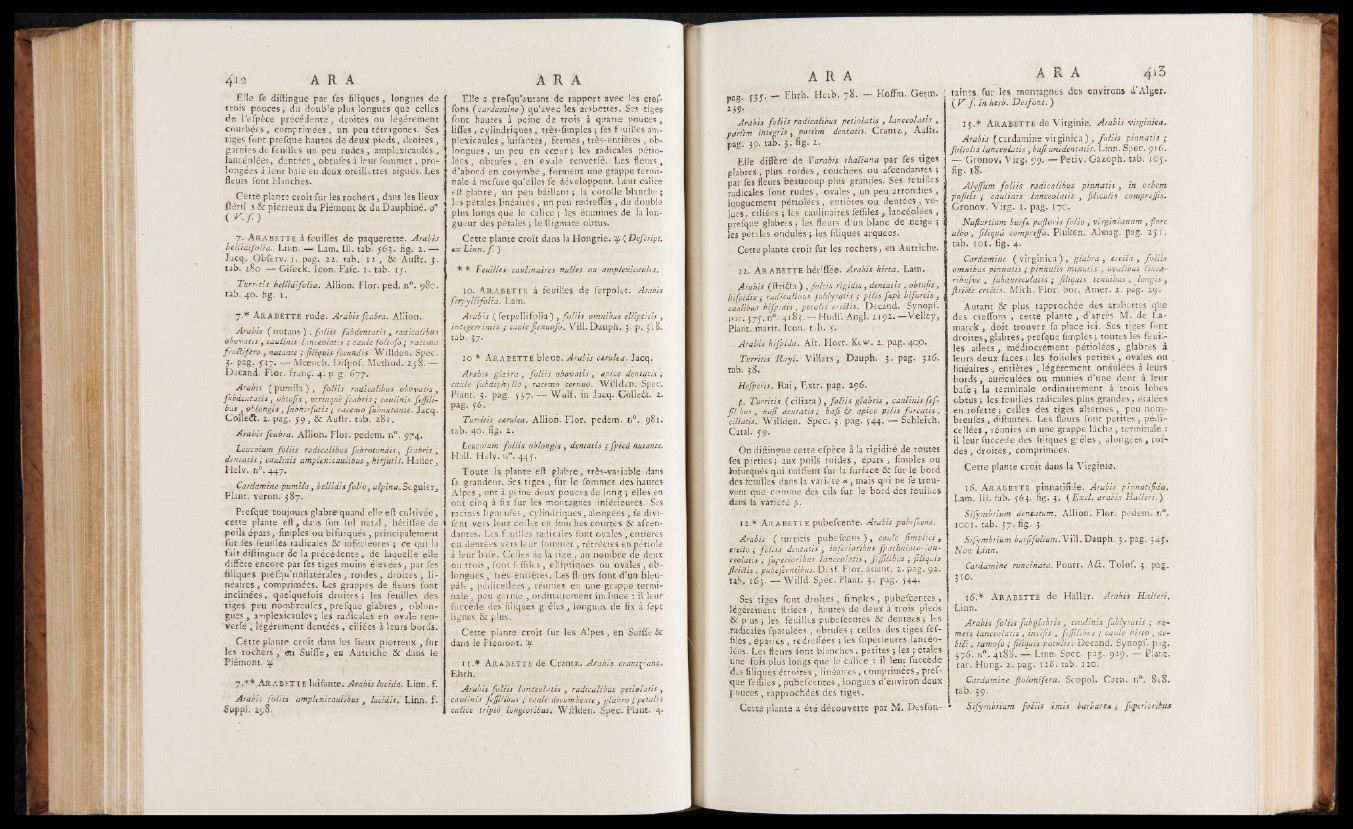 412 ARA ARA
Elle se distingue par ses siliques, longues de
trois pouces, du double plus longues que celles
de l'espèce précédente, droites ou légèrement
courbées, comprimées, un peu tétragones. Ses
tiges sont presque hautes de deux pieds, droites,
garnies de feuilles un peu rudes, amplexicaules,
lancéolées, dentées, obtuses à leur sommet, pro-
longées à leur base en deux oreillettes aiguës. Les
fleurs sont blanches.
Cette plante croît sur les rochers, dans les lieux
stériles & pierreux du Piémont & du Dauphiné. ♂
(V. s.)
7. ARABETTE à feuilles de paquerette. Arabis
bellidifolia. Linn. — Lam. Ill. tab. 563. fig. 2. —
Jacq. Observ. 1. pag. 22. tab. 12, & Austr. 3.
tab. 280 — Giseck. Icon. Fasc. 1. tab. 15.
Turritis bellidifolia. Allion. Flor. ped. n°. 980.
tab. 40. fig. 1.
7.* ARABETTE rude. Arabis scabra. Allion.
Arabis (nutans), foliis subdentatis, radicalibus
obovatis, caulinis lanceolatis; caule folioso; racemo
fructifero, nutante; siliquis secundis Willden. Spec.
3. pag. 537. — Mœnch. Dispos. Method. 258. —
Decand. Flor. franç. 4. pag. 677.
Arabis (pumila), foliis radicalibus obovatis,
subdentatis, obtusis, utrinquè scabris; caulinis sessili-
bus, oblongis, subhirsutis; racemo subnutante. Jacq.
Collect. 2. pag. 59, & Austr. tab. 281.
Arabis scabra. Allion. Flor. pedem. n°. 974.
Leucoium foliis radicalibus subrotundis, scabris,
dentatis; caulinis amplexicaulibus, hirsutis. Haller,
Helv. n°. 447.
Cardamine pumila, bellidis folio, alpina. Seguier,
Plant. veron. 387.
Presque toujours glabre quand elle est cultivée,
cette plante est, dans son sol natal, hérissée de
poils épars, simples ou bifurqués, principalement
sur les feuilles radicales & inférieures; ce qui la
fait distinguer de la précédente, de laquelle elle
diffère encore par ses tiges moins élevées, par ses
siliques presqu'unilatérales, roides, droites, li-
néaires, comprimées. Les grappes de fleurs sont
inclinées, quelquefois droites; les feuilles des
tiges peu nombreuses, presque glabres, oblon-
gues, amplexicaules; les radicales en ovale ren-
versé, légérement dentées, ciliées à leurs bords.
Cette plante croît dans les lieux pierreux, sur
les rochers, en Suisse, en Autriche & dans le
Piémont. ♃
7.** ARABETTE luisante. Arabis lucida. Linn. f.
Arabis foliis amplexicaulibus, lucidis. Linn. f.
Suppl. 298.
Elle a presqu'autant de rapport avec les cres-
sons (cardamine) qu'avec les arabettes. Ses tiges
sont hautes à peine de trois à quatre pouces,
lisses, cylindriques, très-simples; ses feuilles am-
plexicaules, luisantes, fermes, très-entières, ob-
longues, un peu en cœur; les radicales pétio-
lées, obtuses, en ovale renversé. Les fleurs,
d'abord en corymbe, forment une grappe termi-
nale à mesure qu'elles se développent. Leur calice
est glabre, un peu bâillant; la corolle blanche;
les pétales linéaires, un peu redressés, du double
plus longs que le calice; les étamines de la lon-
gueur des pétales; le stigmate obtus.
Cette plante croît dans la Hongrie. ♃ (Descript.
ex Linn. f.)
** Feuilles caulinaires nulles ou amplexicaules.
10. ARABETTE à feuilles de serpolet. Arabis
serpyllifolia. Lam.
Arabis (serpyllifolia), foliis omnibus ellipticis,
integerrimis; caule flexuoso. Vill. Dauph. 3. p. 318.
tab. 37.
10 * ARABETTE bleue. Arabis cœrulea. Jacq.
Arabis glabra, foliis obovatis, apice dentatis;
caule subdiphyllo, racemo cernuo. Willden. Spec.
Plant. 3. pag. 537. — Wulf. in Jacq. Collect. 2.
pag. 56.
Turritis cœrulea. Allion. Flor. pedem. n°. 981.
tab. 40. fig. 2.
Leucoium foliis oblongis, dentatis; spicâ nutante.
Hall. Helv. n°. 445.
Toute la plante est glabre, très-variable dans
sa grandeur. Ses tiges, sur le sommet des hautes
Alpes, ont à peine deux pouces de long; elles en
ont cinq à six sur les montagnes inférieures. Ses
racines ligneuses, cylindriques, alongées, se divi-
sent vers leur collet en souches courtes & ascen-
dantes. Les feuilles radicales sont ovales, entières
ou dentées vers leur sommet, rétrécies en pétiole
à leur base. Celles de la tige, au nombre de deux
ou trois, sont sessiles, elliptiques ou ovales, ob-
longues, très-entières. Les fleurs sont d'un bleu-
pâle, pédicellées, réunies en une grappe termi-
nale, peu garnie, ordinairement inclinée: il leur
succède des siliques grêles, longues de six à sept
lignes & plus.
Cette plante croît sur les Alpes, en Suisse &
dans le Piémont. ♃
11.* ARABETTE de Crantz. Arabis crantziana.
Ehrh.
Arabis foliis lanceolatis, radicalibus petiolatis,
caulinis sessilibus; caule decumbente, glabro; petalis
calice triplò longioribus. Willden. Spec. Plant. 4.
ARA ARA 413
pag. 535. — Ehrh. Herb. 78. — Hoffm. Germ.
239.
Arabis foliis radicalibus petiolatis, lanceolatis,
partim integris, partim dentatis. Crantz, Austr.
pag. 39. tab. 3. fig. 2.
Elle diffère de l'arabis thaliana par ses tiges
glabres, plus roides, couchées ou ascendantes;
par ses fleurs beaucoup plus grandes. Ses feuilles
radicales sont rudes, ovales, un peu arrondies,
longuement pétiolées, entières ou dentées, ve-
lues, ciliées; les caulinaires sessiles, lancéolées,
presque glabres; les fleurs d'un blanc de neige;
les pétales ondulés; les siliques arquées.
Cette plante croît sur les rochers, en Autriche.
12. ARABETTE hérissée. Arabis hirta. Lam.
Arabis (stricta), foliis rigidis, dentatis, obtusis,
hispidis; radicalibus sublyratis; pilis sæpè bifurcis,
caulibus hispidis, petalis erectis. Decand. Synops.
pag. 375. n°. 4183. — Huds. Angl. 2192. — Velley,
Plant. marit. Icon. tab. 5.
Arabis hispida. Ait. Hort. Kew. 2. pag. 400.
Turritis Rayi. Villars, Dauph. 3. pag. 326.
tab. 38.
Hesperis. Rai, Extr. pag. 296.
β. Turritis (ciliata), foliis glabris, caulinis ses-
silibus, basi dentatis; basi & apice pilis furcatis,
ciliatis. Willden. Spec. 3. pag. 544. — Schleich.
Catal. 59.
On distingue cette espèce à la rigidité de toutes
ses parties; aux poils roides, épars, simples ou
bifurqués qui naissent sur la surface & sur le bord
des feuilles dans la variété α, mais qui ne se trou-
vent que comme des cils sur le bord des feuilles
dans la variété β.
12.* ARABETTE pubescente. Arabis pubescens.
Arabis (turritis pubescens), caule simplici,
erecto; foliis dentatis, inferioribus spathulato-lan-
ceolatis; superioribus lanceolatis, sessilibus; siliquis
strictis, pubescentibus. Desf. Flor. atlant. 2. pag. 92.
tab. 163. — Willd. Spec. Plant. 3. pag. 544.
Ses tiges sont droites, simples, pubescentes,
légérement striées, hautes de deux à trois pieds
& plus; les feuilles pubescentes & dentées; les
radicales spatulées, obtuses; celles des tiges ses-
siles, éparses, redressées; les supérieures lancéo-
lées. Les fleurs sont blanches, petites; les pétales
une fois plus longs que le calice: il leur succède
des siliques étroites, linéaires, comprimées, pres-
que sessiles, pubescentes, longues d'environ deux
pouces, rapprochées des tiges.
Cette plante a été découverte par M. Desfon-
taines sur les montagnes des environs d'Alger.
(V. s. in herb. Desfont.)
15.* ARABETTE de Virginie. Arabis virginica.
Arabis (cardamine virginica), foliis pinnatis;
foliolis lanceolatis, basi unidentatis. Linn. Spec. 916.
— Gronov. Virg. 99. — Petiv. Gazoph. tab. 105.
fig. 18.
Alyssum foliis radicalibus pinnatis, in orbem
positis; caulinis lanceolatis, siliculis compressis.
Gronov. Virg. 1. pag. 170.
Nasturtium bursæ pastoris folio, virginianum, flore
albo, siliquâ compressâ. Pluken. Almag. pag. 251.
tab. 101. fig. 4.
Cardamine (virginica), glabra, erecta, foliis
omnibus pinnatis; pinnulis minutis, ovalibus linea-
ribusve, subauriculatis; siliquis tenuibus, longis,
strictè erectis. Mich. Flor. bor. Amer. 2. pag. 29.
Autant & plus rapprochée des arabettes que
des cressons, cette plante, d'après M. de La-
marck, doit trouver sa place ici. Ses tiges sont
droites, glabres, presque simples; toutes les feuil-
les ailées, médiocrement pétiolées, glabres à
leurs deux faces; les folioles petites, ovales ou
linéaires, entières, légérement ondulées à leurs
bords, auriculées ou munies d'une dent à leur
base; la terminale ordinairement à trois lobes
obtus; les feuilles radicales plus grandes, étalées
en rosette; celles des tiges alternes, peu nom-
breuses, distantes. Les fleurs sont petites, pédi-
cellées, réunies en une grappe lâche, terminale:
il leur succède des siliques grêles, alongées, roi-
des, droites, comprimées.
Cette plante croît dans la Virginie.
16. ARABETTE pinnatifide. Arabis pinnatifida.
Lam. Ill. tab. 563. fig. 3. (Excl. arabis Halleri.)
Sisymbrium dentatum. Allion. Flor. pedem. n°.
1001. tab. 57. fig. 3.
Sisymbrium bursifolium. Vill. Dauph. 3. pag. 345.
Non Linn.
Cardamine runcinata. Pourr. Act. Tolos. 3. pag.
310.
16.* ARABETTE de Haller. Arabis Halleri.
Linn.
Arabis foliis subglabris, caulinis sublyratis; ra-
meis lanceolatis, incisis, sessilibus; caule hirto, de-
bili, ramoso; siliquis patulis. Decand. Synops. pag.
376. n°. 4188. — Linn. Spec. pag. 929. — Plant.
rar. Hung. 2. pag. 126. tab. 120.
Cardamine stolonifera. Scopol. Carn. n°. 818.
tab. 39.
Sisymbrium foliis imis barbareæ; superioribus